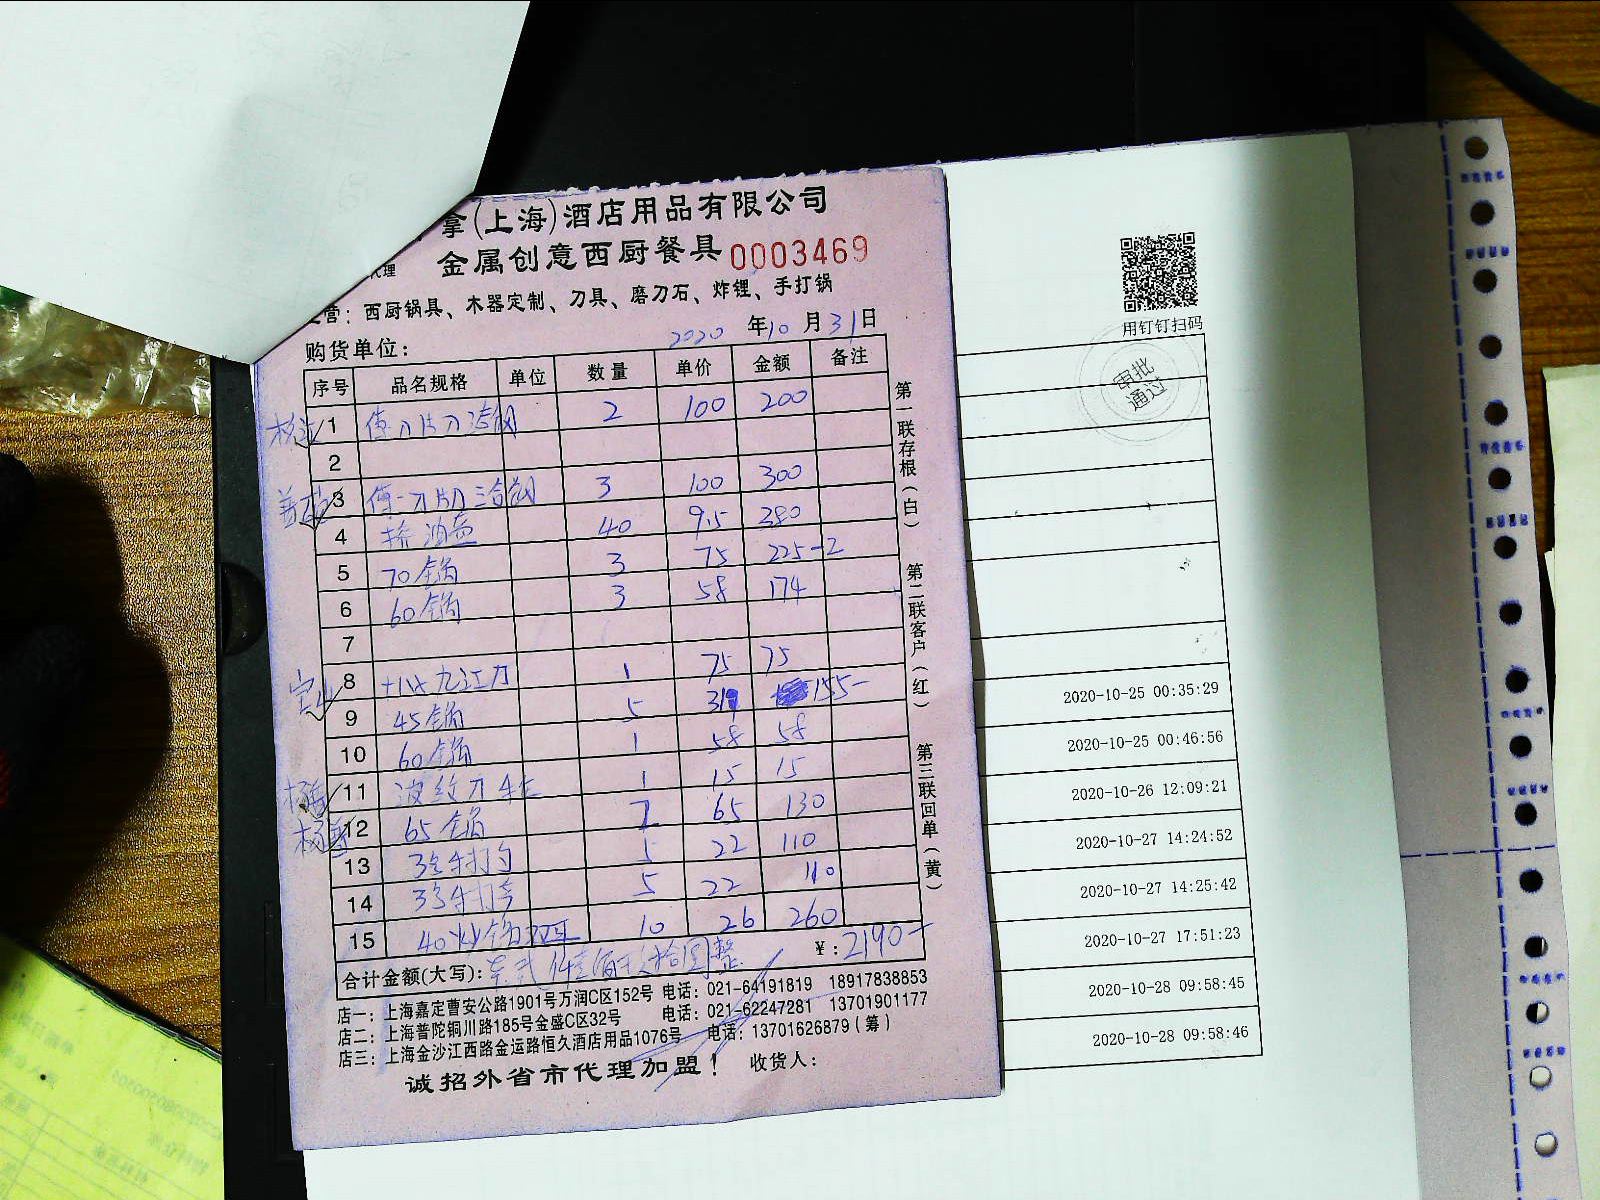 拿(上海)酒店用品有限公司
代理 金属创意西厨餐具 0003469
营：西厨锅具、木器定制、刀具、磨刀石、炸锂、手打锅
2020 年 10 月 31 日
购货单位：
序号 品名规格 单位 数量 单价 金额 备注
1 片刀 2 100 200
2
3 3 100 300
4 油盆 40 9.5 380
5 70锅 3 75 225-2
6 60锅 3 58 174
7
宝山 8 九江刀 1 75 75
9 45锅 5 31 155-
10 60锅 1 58 58
11 波纹刀 1 15 15
12 65锅 2 65 130
13 5 22 110
14 5 22 110
15 40炒锅双耳 10 26 260
合计金额(大写)： ¥：2190-
店一：上海嘉定曹安公路1901号万润C区152号 电话：021-64191819 18917838853
店二：上海普陀铜川路185号金盛C区32号 电话：021-62247281 13701901177
店三：上海金沙江西路金运路恒久酒店用品1076号 电话：13701626879(筹)
诚招外省市代理加盟！ 收货人：
第一联存根(白)
第二联客户(红)
第三联回单(黄)
用钉钉扫码
审批
通过
2020-10-25 00:35:29
2020-10-25 00:46:56
2020-10-26 12:09:21
2020-10-27 14:24:52
2020-10-27 14:25:42
2020-10-27 17:51:23
2020-10-28 09:58:45
2020-10-28 09:58:46